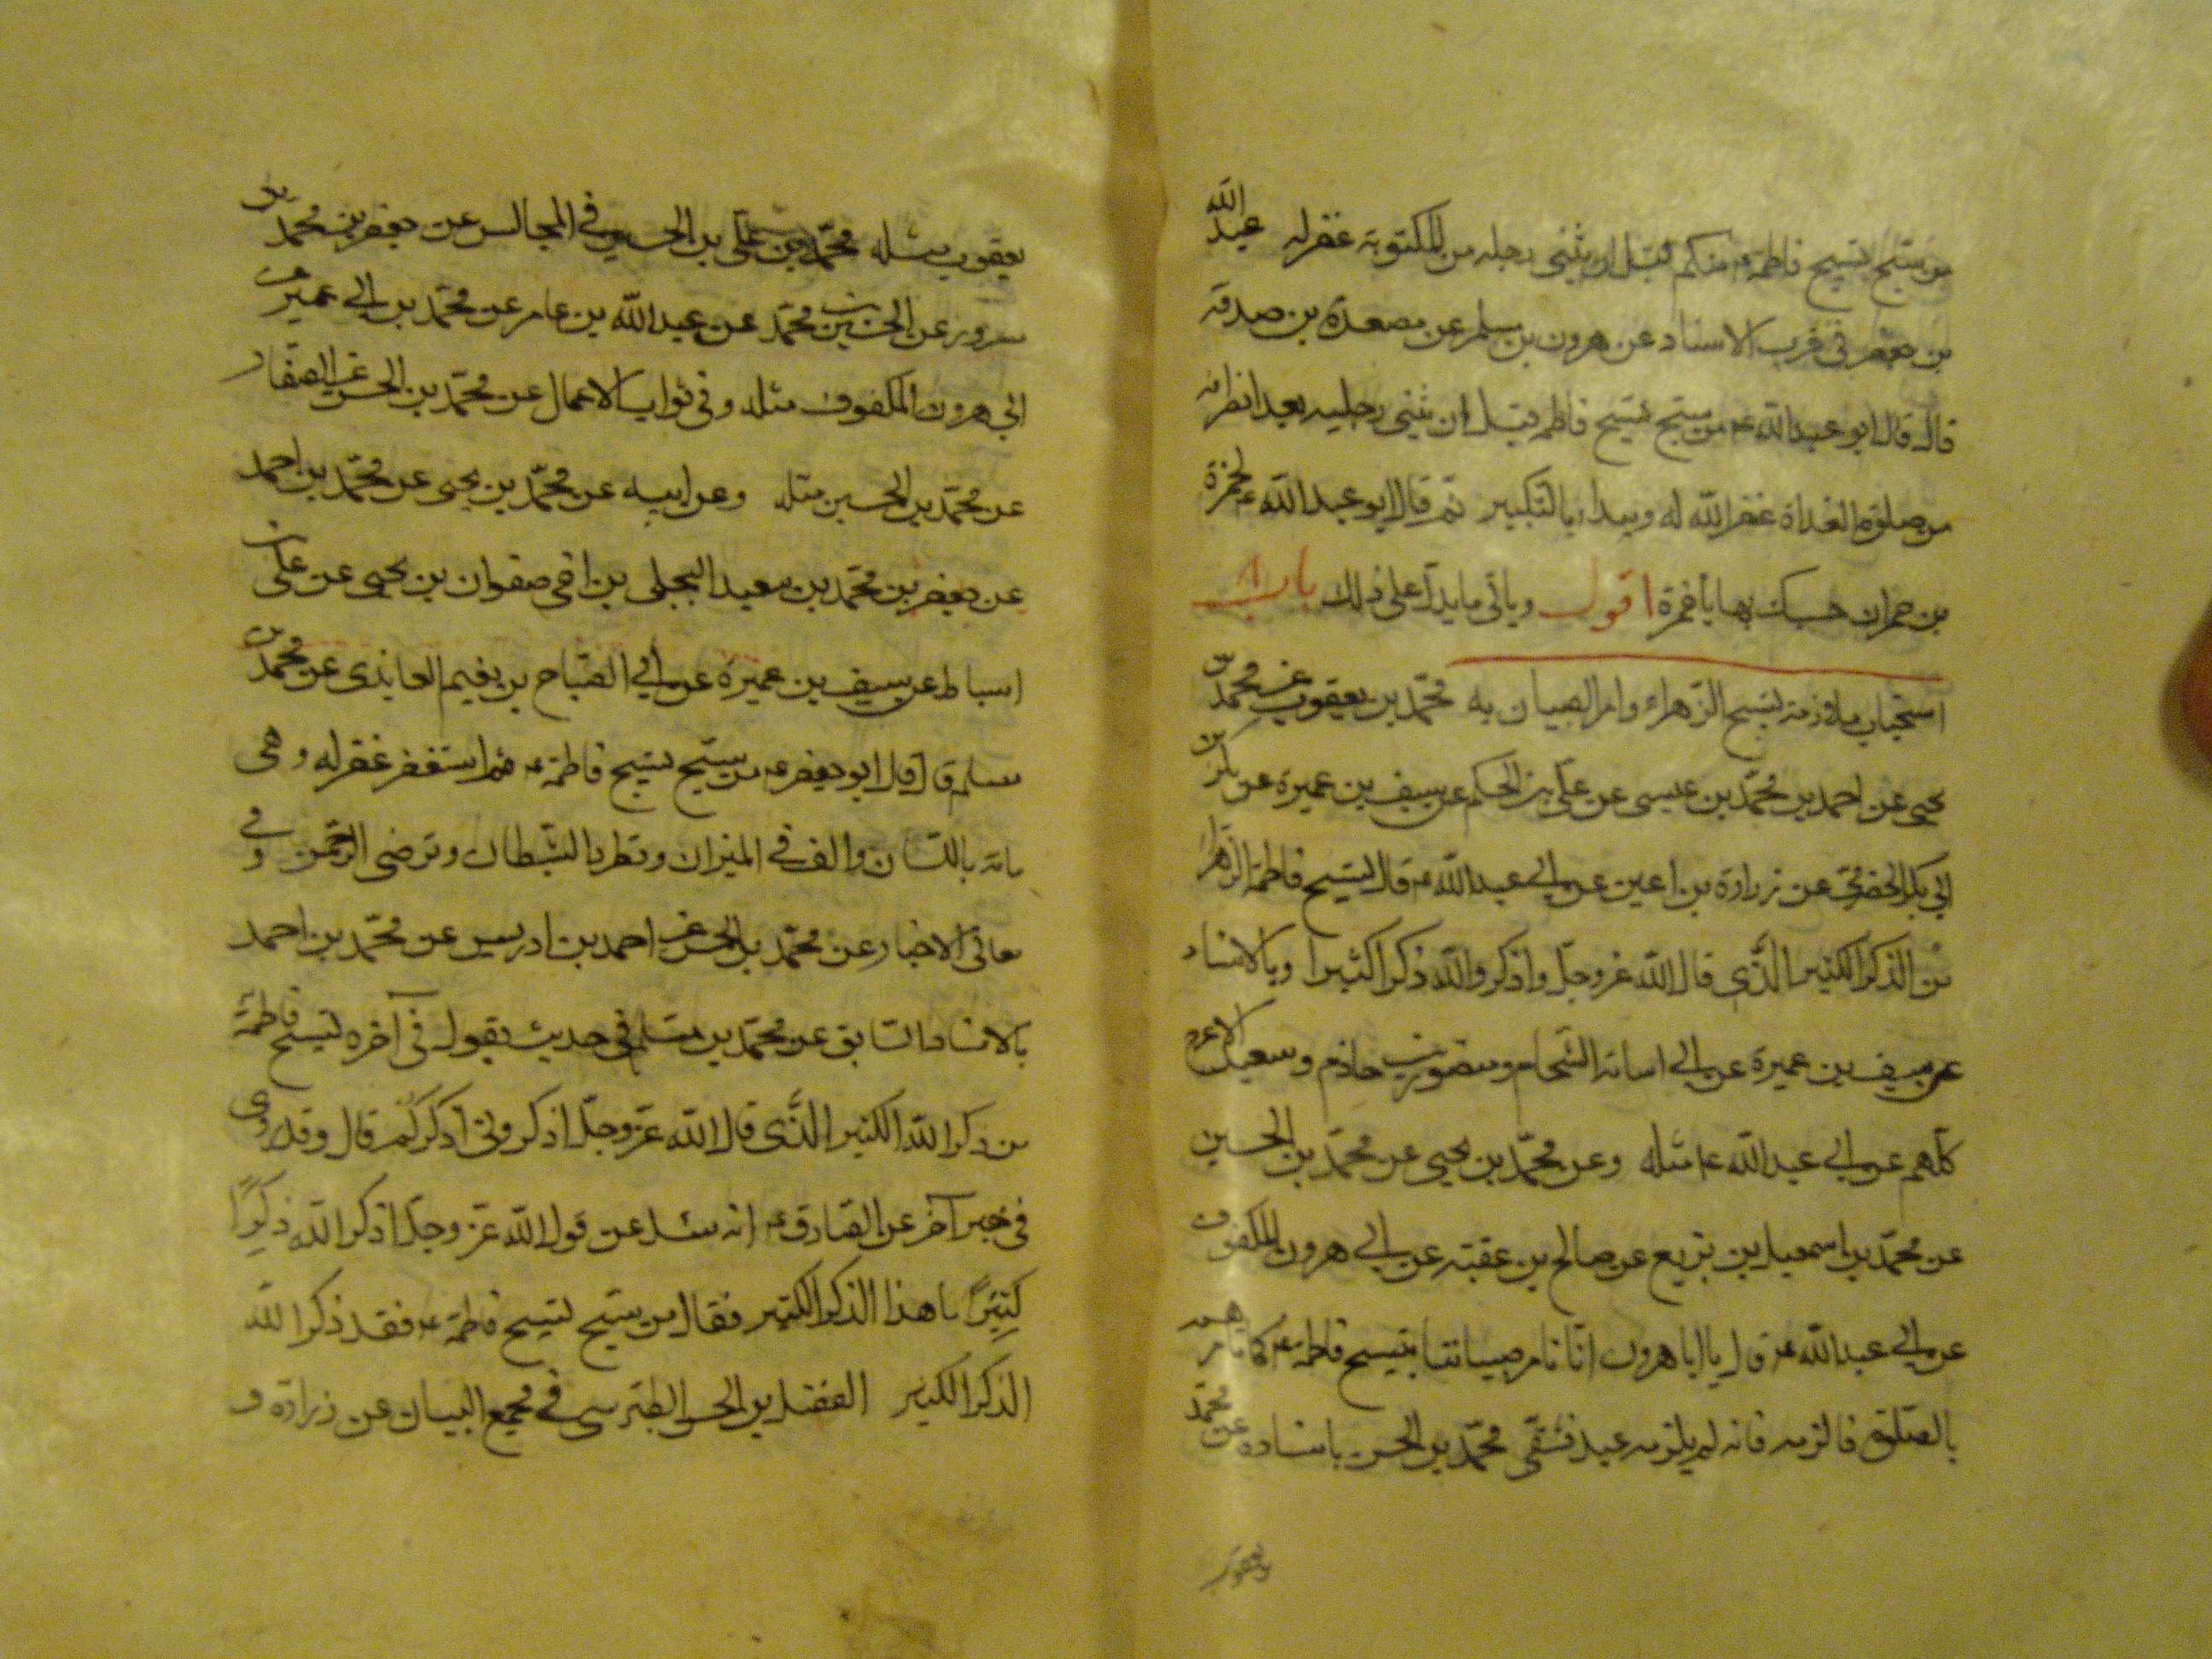 من سبّح تسبيح فاطمة ع منكم قبل ان يثنى رجله من المكتوبة غفر له عبد الله
بن جعفر فى قرب الاسناد عن هرون بن مسلم عن مصعدة بن صدقة
قال قال ابو عبد الله ع من سبح تسبيح فاطمه قبل ان يثنى رجليه بعد انصرافه
من صلوة الغداة غفر الله له ويبداء بالتكبير ثم قال ابو عبد الله ع لحمزة
بن حمران حسبك بها يا حمزة اقول وياتى ما يدل على ذلك باب ٨
استحباب ملازمة تسبيح الزهراء وامر الصبيان به محمّد بن يعقوب عن محمّد بن
يحيى عن احمد بن محمّد بن عيسى عن على بن الحكم عن سيف بن عميرة عن بكر بن
ابى بكر الحضرمى عن زرارة بن اعين عن ابى عبد الله ع قال تسبيح فاطمة الزهرا
من الذكر الكثير الّذى قال الله عز وجلّ واذكروا الله ذكرا كثيرا وبالاسناد
عن سيف بن عميرة عن ابى اسامة الشحام ومنصور بن حازم وسعيد الاعرج
كلّهم عن ابى عبد الله ع مثله وعن محمّد بن يحيى عن محمّد بن الحسين
عن محمّد بن اسمعيل بن بزيع عن صالح بن عقبة عن ابى هرون المكفوف
عن ابى عبد الله ع قال يا ابا هرون انّا نامر صبياننا بتسبيح فاطمة ع كما نامرهم
بالصّلوة فالزمه فانه لم يلزمه عبد فشقى محمّد بن الحسن باسناده عن محمّد
بن يعقوب
يعقوب مثله محمّد بن على بن الحسين فى المجالس عن جعفر بن محمّد بن
مسرور عن الحسين بن محمّد عن عبد الله بن عامر عن محمّد بن ابى عمير عن
ابى هرون المكفوف مثله وفى ثواب الاعمال عن محمّد بن الحسن عن الصفار
عن محمّد بن الحسين مثله وعن ابيه عن محمّد بن يحيى عن محمّد بن احمد
عن جعفر بن محمّد بن سعيد البجلى بن اخى صفوان بن يحيى عن على بن
اسباط عن سيف بن عميرة عن ابى الصّباح بن نعيم العايذى عن محمّد بن
مسلم قال قال ابو جعفر ع من سبّح تسبيح فاطمة ع ثم استغفر غفر له وهى
مائة باللسان والف فى الميزان وتطرد الشيطان وترضى الرحمن وفى
معانى الاخبار عن محمّد بن الحسن عن احمد بن ادريس عن محمّد بن احمد
بالاسناد السابق عن محمّد بن مسلم فى حديث يقول فى آخره تسبيح فاطمة
من ذكر الله الكثير الّذى قال الله عزّ وجلّ اذكرونى اذكركم قال وقد روى
فى خبر آخر عن الصادق ع انه سئل عن قول الله عزّ وجلّ اذكروا الله ذكرًا
كثيرًا ما هذا الذكر الكثير فقال من سبّح تسبيح فاطمة ع فقد ذكر الله
الذكر الكثير الفضل بن الحسن الطبرسى فى مجمع البيان عن زرارة و